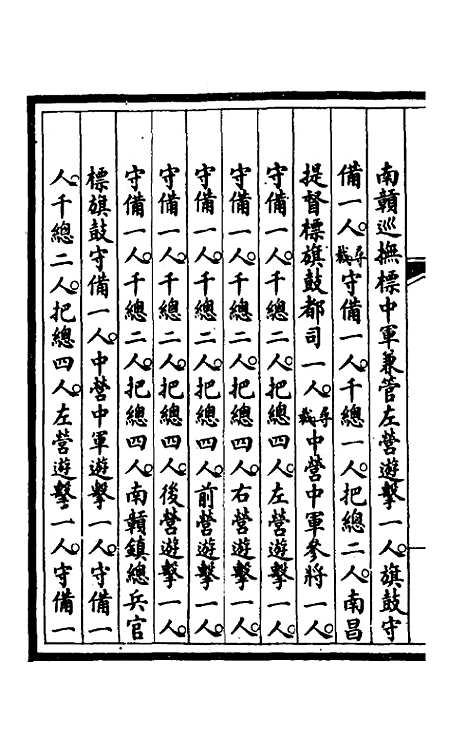 南贛巡撫標中軍兼管左營遊擊一人。旗鼓守
備一人。尋裁守備一人。千總一人。把總二人。南昌
提督標旗鼓都司一人。尋裁中營中軍參將一人。
守備一人。千總二人。把總四人。左營遊擊一人。
守備一人。千總二人。把總四人。右營遊擊一人。
守備一人。千總二人。把總四人。前營遊擊一人。
守備一人。千總二人。把總四人。後營遊擊一人。
守備一人。千總二人。把總四人。南贛鎮總兵官
標旗鼓守備一人。中營中軍遊擊一人。守備一
人。千總二人。把總四人。左營遊擊一人。守備一